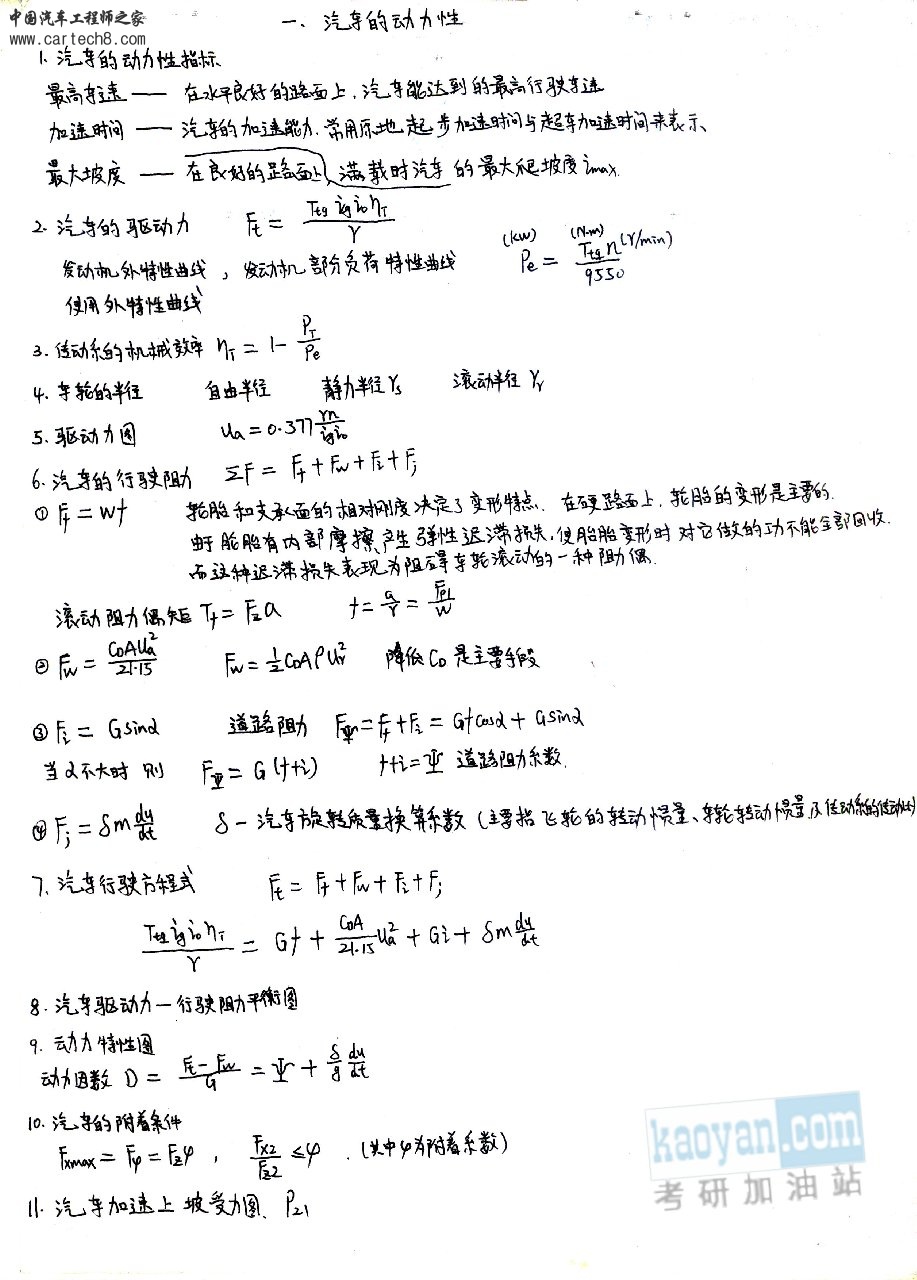 中国汽车工程师之家
www.cartech8.com
一、汽车的动力性
1. 汽车的动力性指标
最高车速 —— 在水平良好的路面上,汽车能达到的最高行驶车速
加速时间 —— 汽车的加速能力.常用原地起步加速时间与超车加速时间来表示、
最大坡度 —— 在良好的路面上,满载时汽车的最大爬坡度 imax.
2. 汽车的驱动力 Ft = Ttq ig i0 ηT / r
(kw) (N·m) (r/min)
Pe = Ttq n / 9550
发动机外特性曲线,发动机部分负荷特性曲线
使用外特性曲线
3. 传动系的机械效率 ηT = 1 - PT / Pe
4. 车轮的半径 自由半径 静力半径 rs 滚动半径 rr
5. 驱动力图 ua = 0.377 rn / ig i0
6. 汽车的行驶阻力 ΣF = Ff + Fw + Fi + Fj
① Ff = Wf 轮胎和支承面的相对刚度决定了变形特点. 在硬路面上,轮胎的变形是主要的.
由于轮胎有内部摩擦产生弹性迟滞损失,使轮胎变形时对它做的功不能全部回收.
而这种迟滞损失表现为阻碍车轮滚动的一种阻力偶.
滚动阻力偶矩 Tf = Fz a f = a / r = Fp1 / W
② Fw = CDAua² / 21.15 Fw = ½ CDAρur² 降低 CD 是主要手段
③ Fi = Gsinα 道路阻力 FΨ = Ff + Fi = Gfcosα + Gsinα
当α不大时 则 FΨ = G(f+i) f+i = Ψ 道路阻力系数.
④ Fj = δm du/dt δ — 汽车旋转质量换算系数 (主要指飞轮的转动惯量、车轮转动惯量及传动系的传动比)
7. 汽车行驶方程式 Ft = Ff + Fw + Fi + Fj
Ttq ig i0 ηT / r = Gf + CDA / 21.15 ua² + Gi + δm du/dt
8. 汽车驱动力—行驶阻力平衡图
9. 动力特性图
动力因数 D = Ft - Fw / G = Ψ + δ/g du/dt
10. 汽车的附着条件
Fxmax = Fφ = Fzφ , Fx2 / Fz2 ≤ φ . (其中φ为附着系数)
11. 汽车加速上坡受力图、P21
kaoyan.com
考研加油站